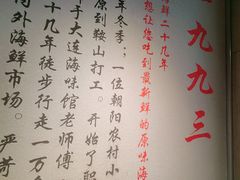 一九九三
海鲜二十九年
想让您吃到最新鲜的原味海
年冬季;一位朝阳农村小
原到鞍山打工。开始了职
于大连海味馆老师傅
十几年徒步行走一万
外海鲜市场。严苛